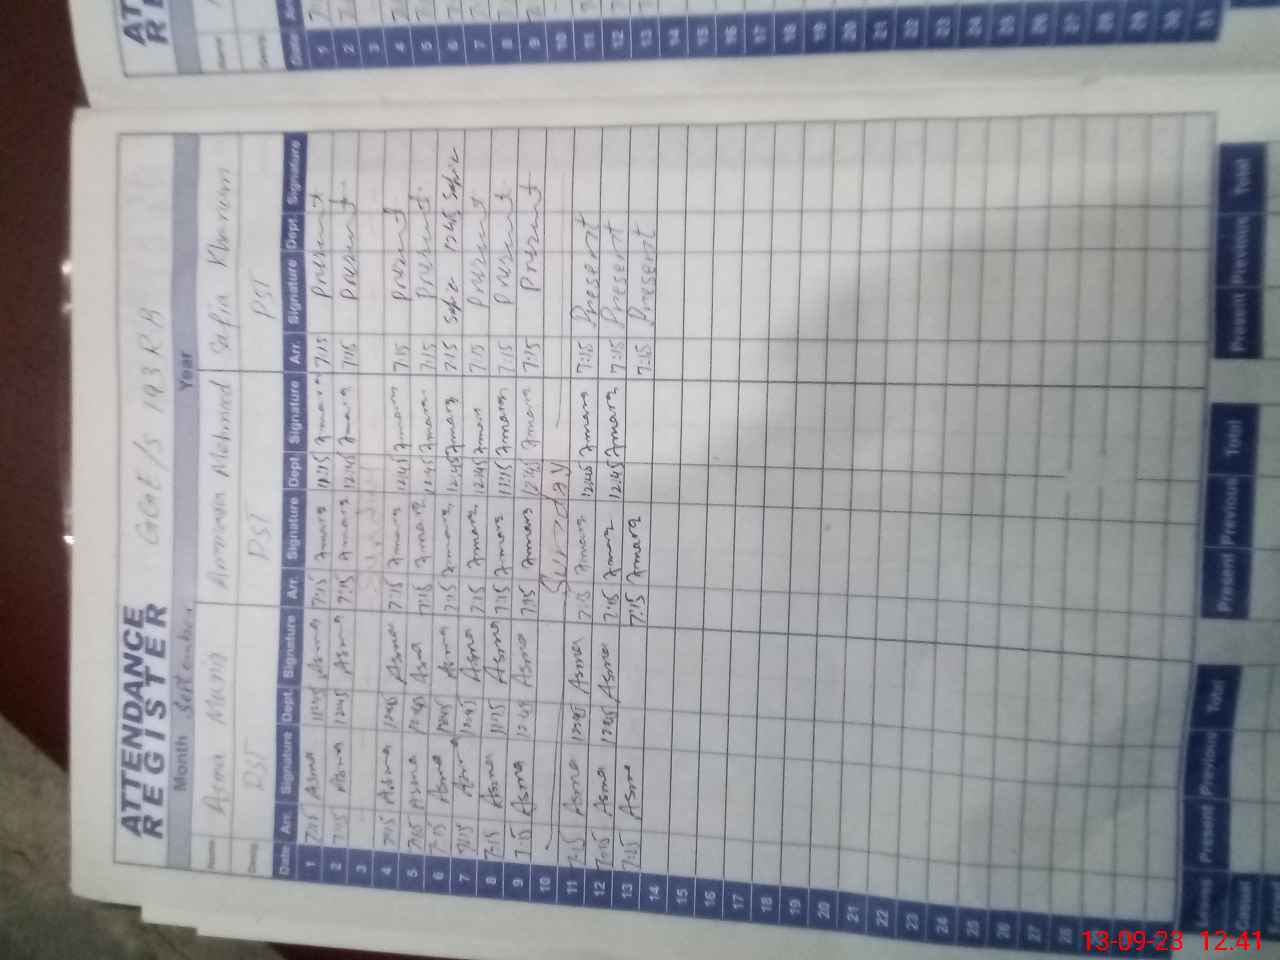 ATTENDANCE
REGISTER
GGE/S 193 RB
Month September Year
Name Asma Munir Ammara Mehmood Safia Khanum
Desig. PST PST PST
Date Arr. Signature Dept. Signature Arr. Signature Dept. Signature Arr. Signature Dept. Signature
1 7:15 Asma 11:45 Asma 7:15 Amara 11:45 Amara 7:15 Present
2 7:15 Asma 12:45 Asma 7:15 Amara 12:45 Amara 7:15 Present
3
4 7:15 Asma 12:45 Asma 7:15 Amara 12:45 Amara 7:15 Present
5 7:15 Asma 12:45 Asma 7:15 Amara 12:45 Amara 7:15 Present
6 7:15 Asma 12:45 Asma 7:15 Amara 12:45 Amara 7:15 Safia 12:45 Safia
7 7:15 Asma 12:45 Asma 7:15 Amara 12:45 Amara 7:15 Present
8 7:15 Asma 11:15 Asma 7:15 Amara 11:15 Amara 7:15 Present
9 7:15 Asma 12:45 Asma 7:15 Amara 12:45 Amara 7:15 Present
10 Sunday
11 7:15 Asma 12:45 Asma 7:15 Amara 12:45 Amara 7:15 Present
12 7:15 Asma 12:45 Asma 7:15 Amara 12:45 Amara 7:15 Present
13 7:15 Asma 7:15 Amara 7:15 Present
14
15
16
17
18
19
20
21
22
23
24
25
26
27
28
Leaves Present Previous Total Present Previous Total Present Previous Total
Casual
13-09-23 12:41